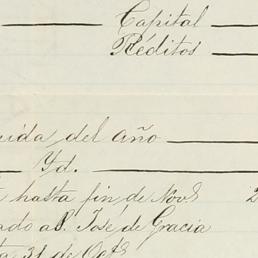 Capital
Réditos
uida del año
Yd.
hasta fin de Novᵉ 2
ado a P. José de Gracia
ta 31 de Octᵉ